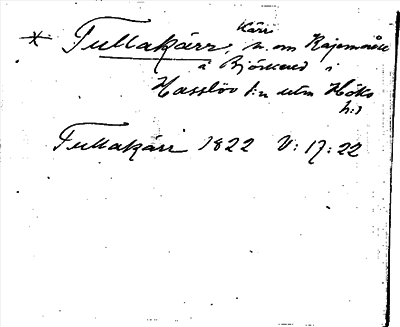 * Tullakärr, Kärr n. om Rajamåse
å Björsered i
Hasslöv s:n utm Höks
h:d
Tullakärr 1822 V: 17: 22